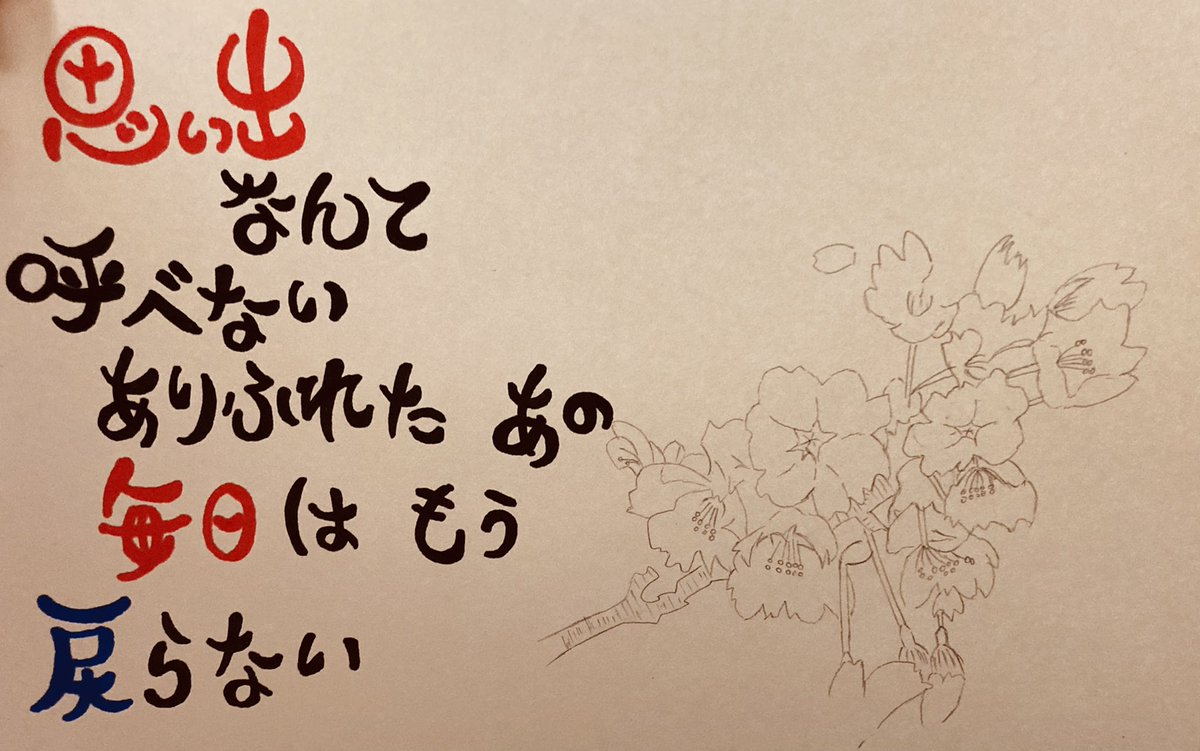 思い出
なんて
呼べない
ありふれた あの
毎日は もう
戻らない